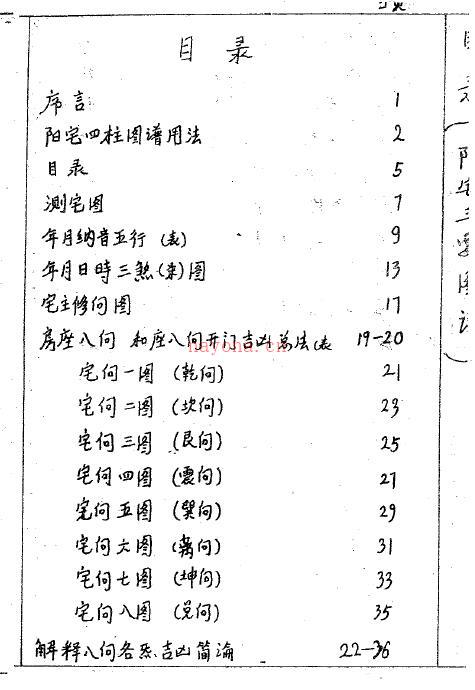 目录
序言 1
阳宅四柱图谱用法 2
目录 5
测宅图 7
年月纳音五行(表) 9
年月日時三煞(柒)图 13
宅主修向图 17
房座八向 和座八向开门吉凶总法(表 19-20
宅向一图 (乾向) 21
宅向二图 (坎向) 23
宅向三图 (艮向) 25
宅向四图 (震向) 27
宅向五图 (巽向) 29
宅向六图 (离向) 31
宅向七图 (坤向) 33
宅向八图 (兑向) 35
解释八向各点吉凶简论 22-36
nayona.cn